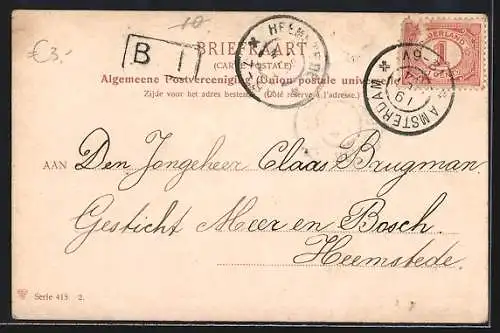 10
€3,-
B I
BRIEFKAART
(CARTE POSTALE)
Algemeene Postvereeniging (Union postale universelle)
Zijde voor het adres bestemd. (Côté réservé à l'adresse.)
NEDERLAND
1
CENT
AMSTERDAM
AAN Den Jongeheer Claas Brugman.
Gesticht Meer en Bosch.
Heemstede.
Serie 415. 2.